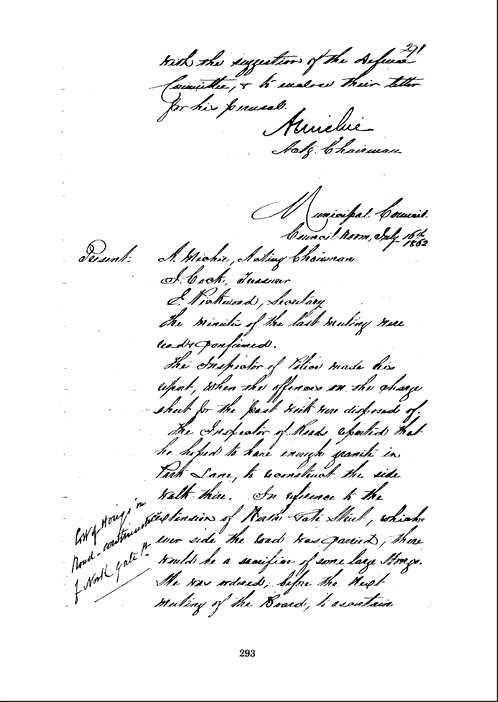 291
with the suggestion of the Defence
Committee, & to enclose their letter
for his perusal.
A Michie
Actg. Chairman
Municipal Council.
Council Room, July 16th
1862
Present: A. Michie, Acting Chairman
J. Cock, Treasurer
E. Pickwoad, Secretary
The minutes of the last meeting were
read & confirmed.
The Inspector of Police made his
report, when the offences on the charge
sheet for the past week were disposed of.
The Inspector of Roads reported that
he hoped to have enough granite in
Park Lane, to reconstruct the side
walk there. In reference to the
extension of North Gate Street, which
ever side the road was carried, there
would be a sacrifice of some large Hongs.
He was ordered, before the next
meeting of the Board, to ascertain
Cost of Hongs in
Road - continuation
of North gate St
293